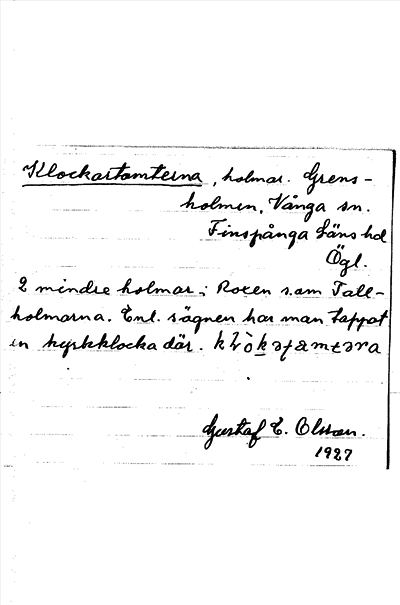 Klockartomterna, holmar. Grens-
holmen, Vånga sn.
Finspånga läns hd
Ögl.
2 mindre holmar i Roxen s.om Tall-
holmarna. Enl. sägnen har man tappat
en kyrkklocka där.
Gustaf E. Olsson.
1927